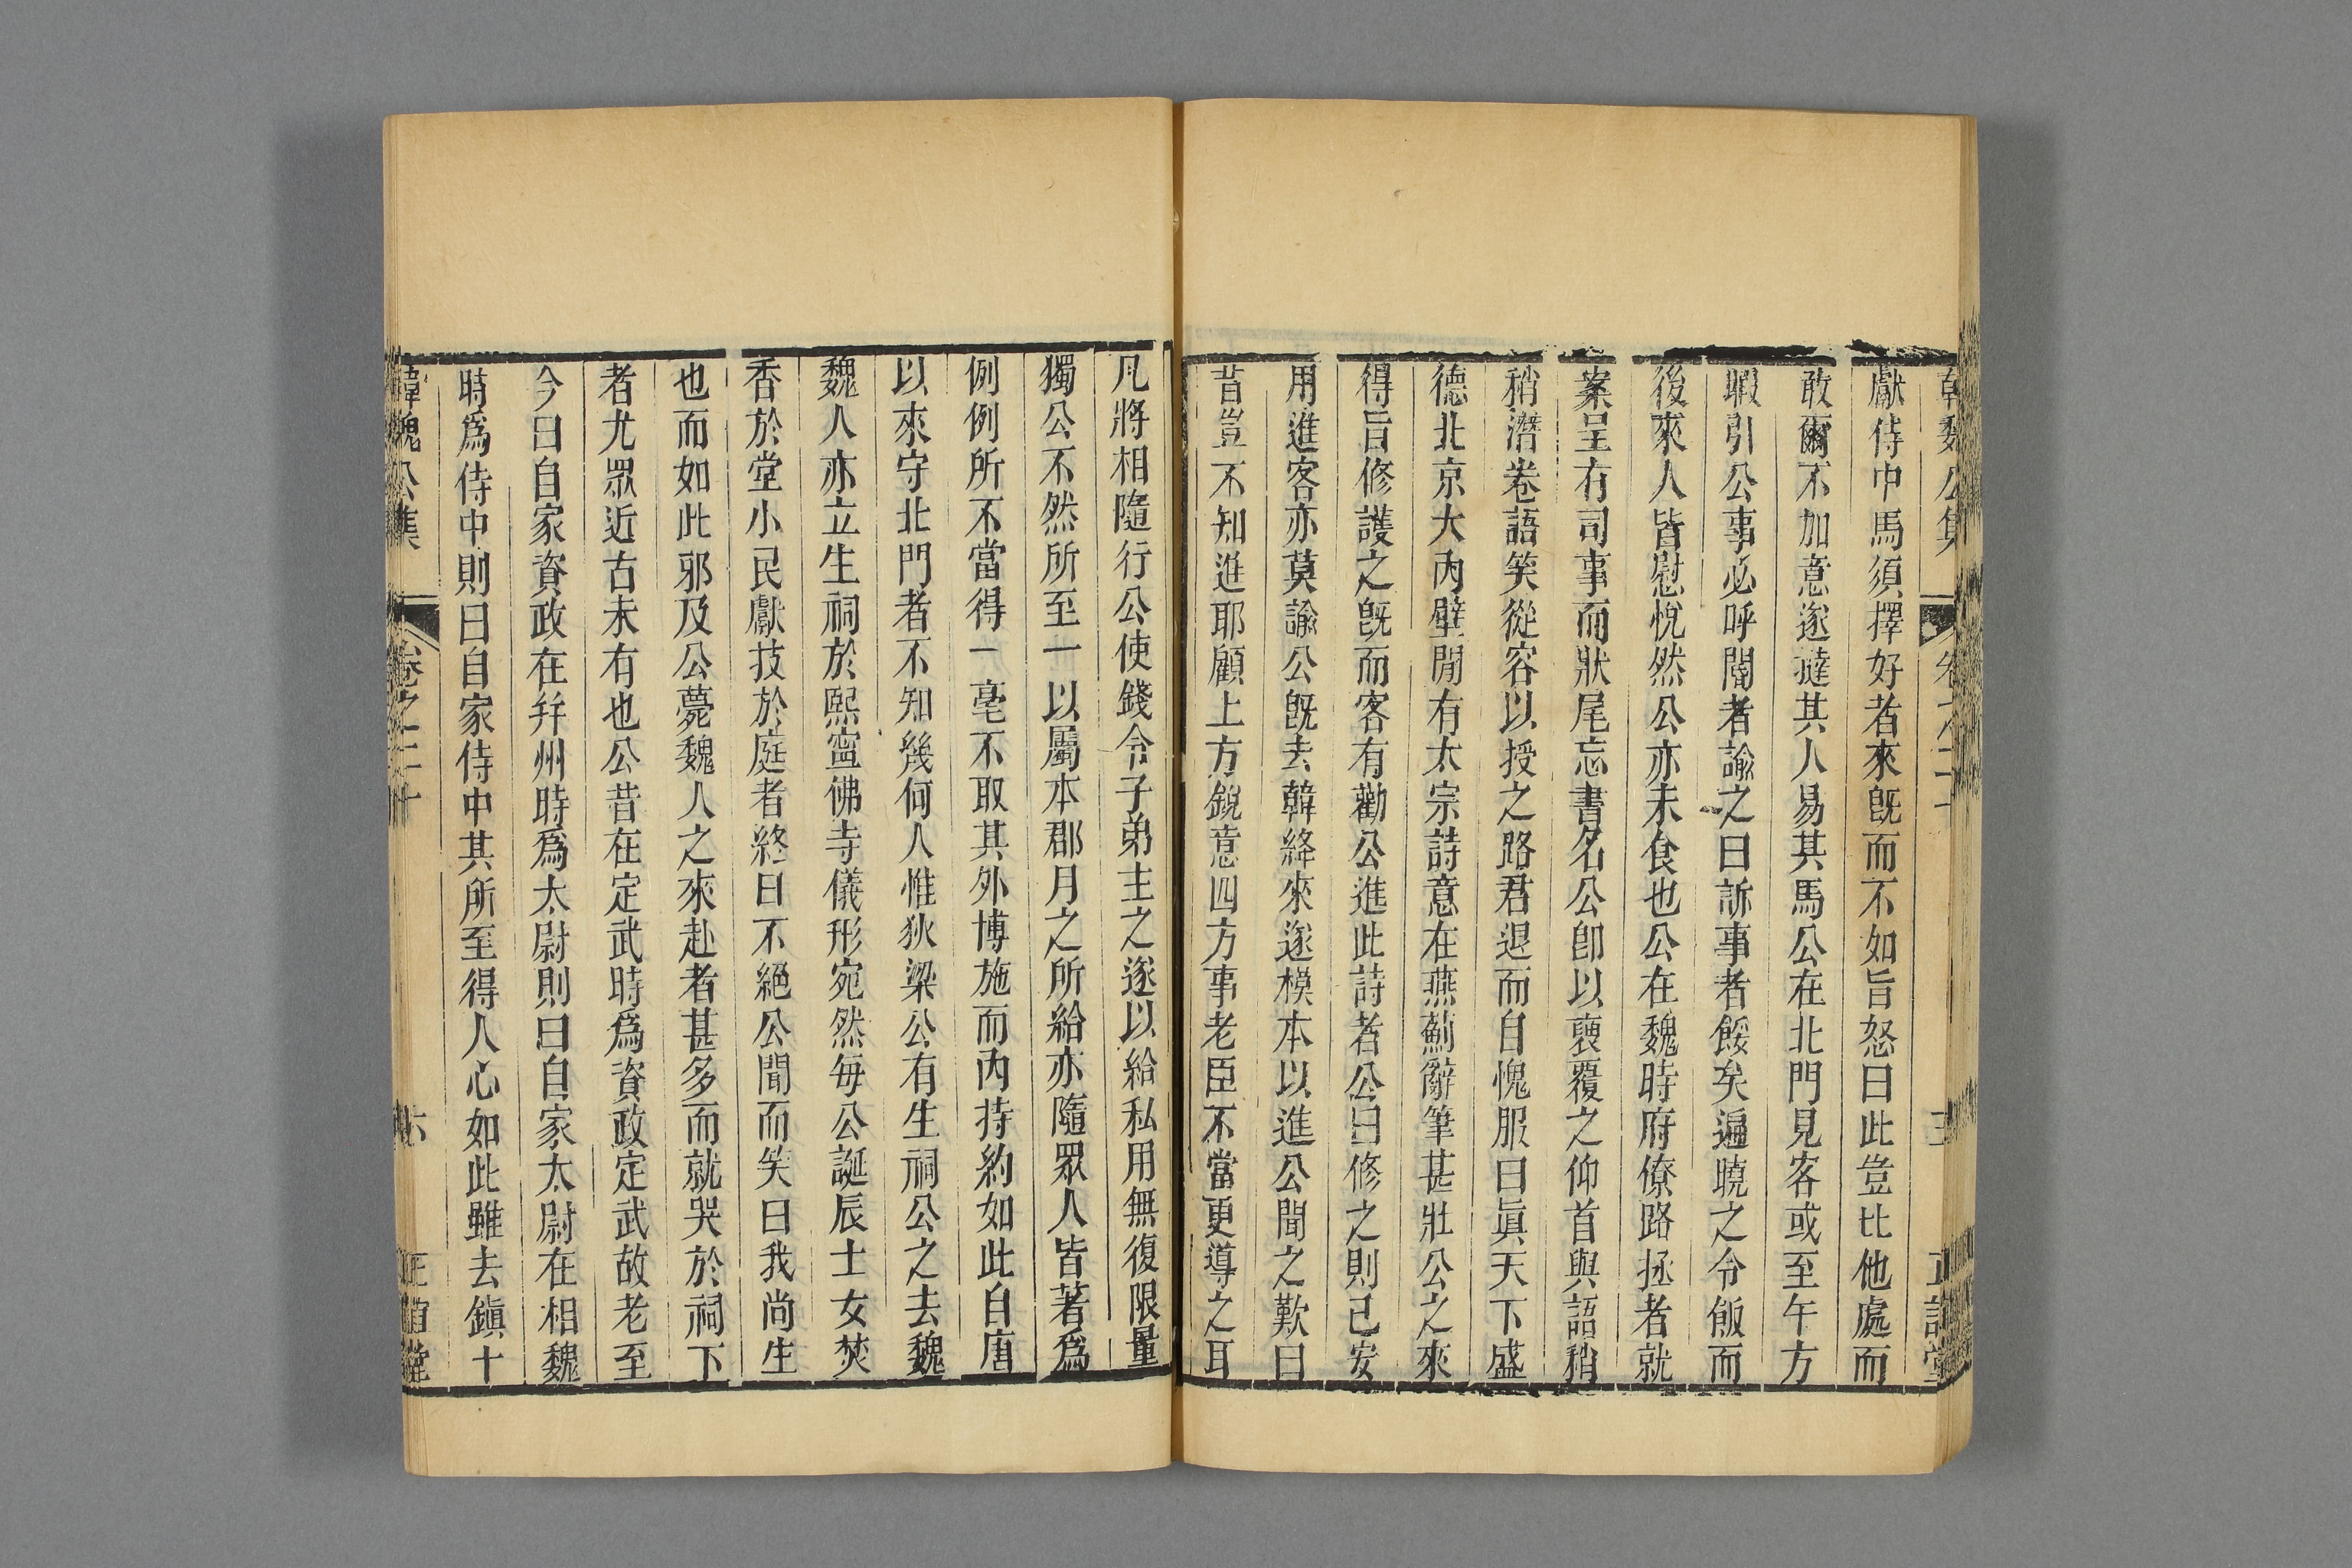 韓魏公集 卷之二十 正誼堂
獻侍中馬須擇好者來旣而不如旨怒曰此豈比他處而
敢爾不加意遂撻其人易其馬公在北門見客或至午方
暇引公事必呼閽者諭之曰訴事者餒矣遍曉之令飯而
後來人皆慰悅然公亦未食也公在魏時府僚路拯者就
案呈有司事而狀尾忘書名公卽以䙝覆之仰首與語稍
稍潛卷語笑從容以授之路君退而自愧服曰眞天下盛
德北京大內壁閒有太宗詩意在燕薊辭筆甚壯公之來
得旨修護之旣而客有勸公進此詩者公曰修之則已安
用進客亦莫諭公旣去韓絳來遂模本以進公聞之歎曰
昔豈不知進耶顧上方銳意四方事老臣不當更導之耳
凡將相隨行公使錢令子弟主之遂以給私用無復限量
獨公不然所至一以屬本郡月之所給亦隨眾人皆著爲
例例所不當得一毫不取其外博施而內持約如此自唐
以來守北門者不知幾何人惟狄梁公有生祠公之去魏
魏人亦立生祠於熙寧佛寺儀形宛然每公誕辰士女焚
香於堂小民獻技於庭者終日不絕公聞而笑曰我尚生
也而如此邪及公薨魏人之來赴者甚多而就哭於祠下
者尤眾近古未有也公昔在定武時爲資政定武故老至
今曰自家資政在幷州時爲太尉則曰自家太尉在相魏
時爲侍中則曰自家侍中其所至得人心如此雖去鎭十
韓魏公集 卷之二十 六 正誼堂